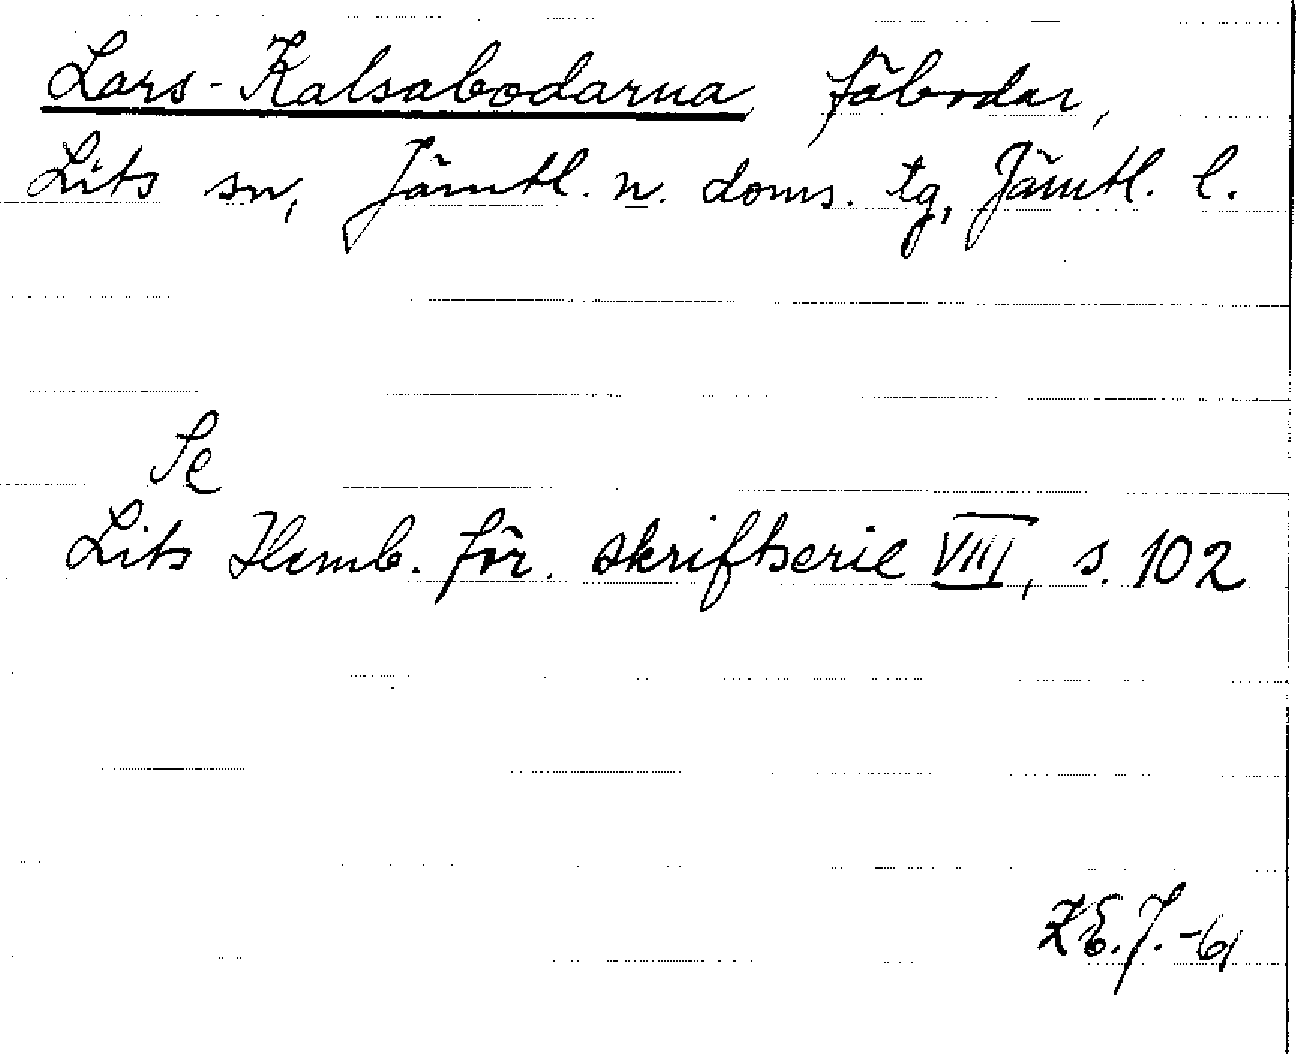 Lars-Kalsabodarna, fäbodar,
Lits sn, Jämtl. n. doms. tg, Jämtl. l.
Se
Lits Hemb. för. skriftserie VIII, s. 102
E.J. -61